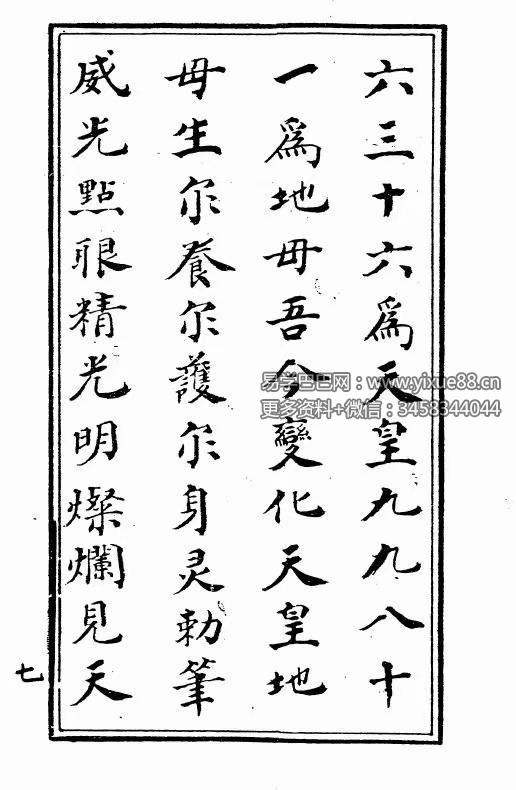 六三十六爲天皇九九八十
一爲地毋吾今變化天皇地
毋生尔養尔護尔身灵勅筆
威光點眼精光明燦爛見天
七
易学巴巴网：www.yixue88.cn
更多资料+微信：3458344044